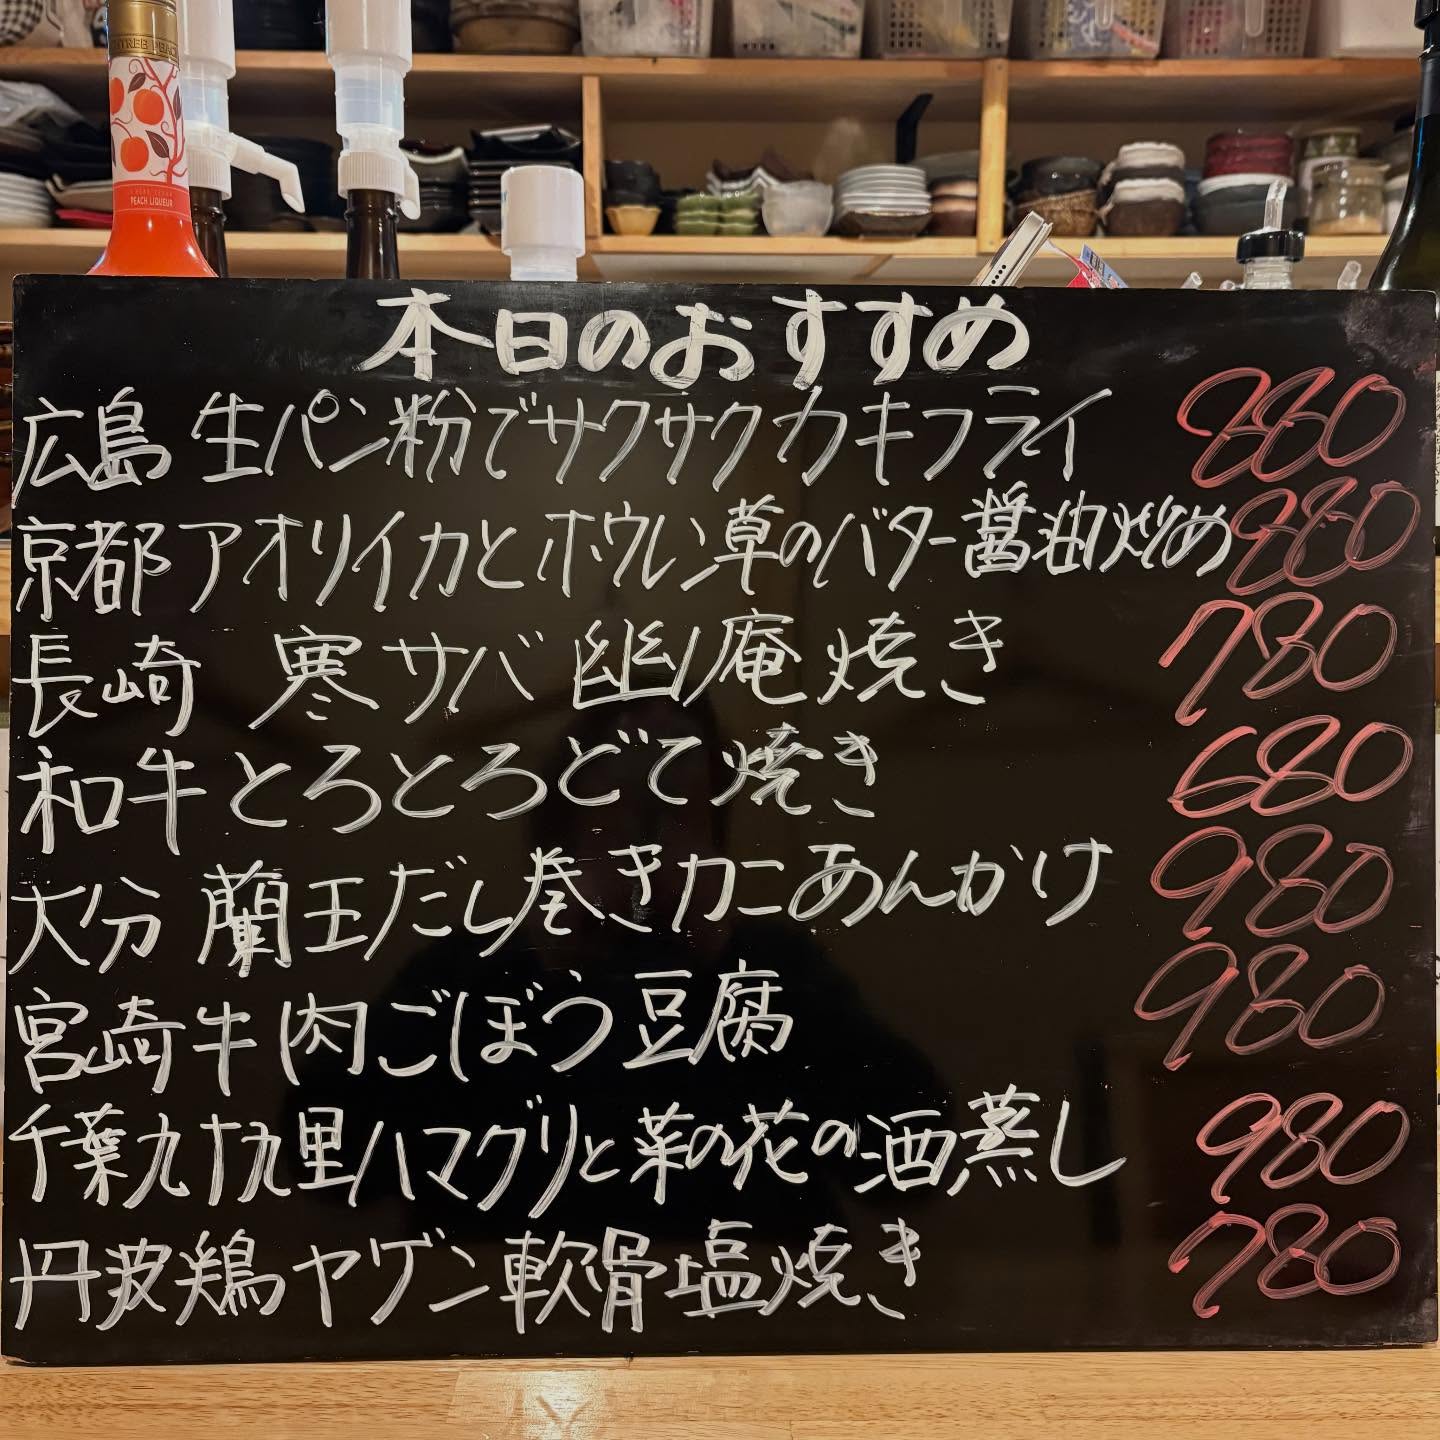 TREE PEACH
PEACH LIQUEUR
本日のおすすめ
広島 生パン粉でサクサクカキフライ 880
京都 アオリイカとホウレン草のバター醤油炒め 880
長崎 寒サバ幽庵焼き 780
和牛とろとろどて焼き 680
大分 蘭王だし巻きカニあんかけ 980
宮崎牛肉ごぼう豆腐 980
千葉九十九里ハマグリと菜の花の酒蒸し 980
丹波鶏ヤゲン軟骨塩焼き 780